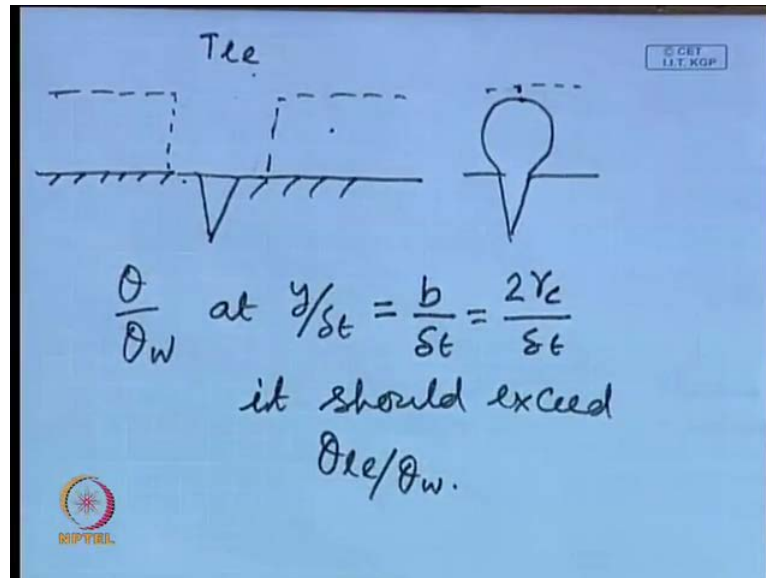 Tle
© CET
I.I.T. KGP
θ/θw at y/δt = b/δt = 2rc/δt
it should exceed
θle/θw.
NPTEL